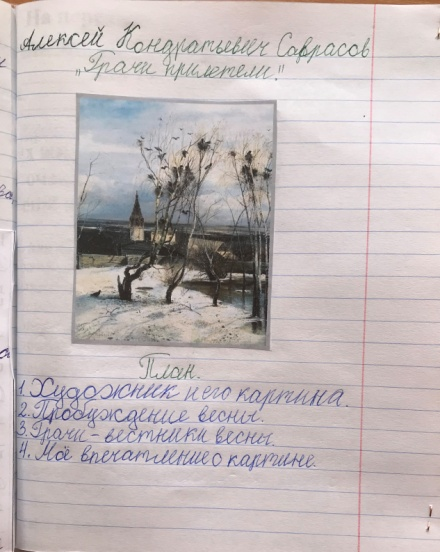 Алексей Кондратьевич Саврасов
„Грачи прилетели."
План.
1. Художник и его картина.
2. Пробуждение весны.
3. Грачи - вестники весны.
4. Моё впечатление о картине.